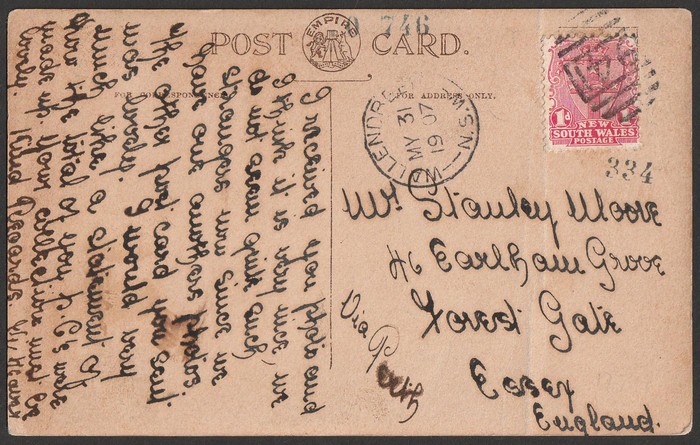 746
POST CARD.
EMPIRE
FOR CORRESPONDENCE.
FOR ADDRESS ONLY.
N.S.W
MY 31
19 07
1d
NEW
SOUTH WALES
POSTAGE
334
Mr. Stanley Moore
46 Earlham Grove
Forest Gate
Essex
England.
Via Perth
I received you photo and
I think it is very nice, we
do not seem quite such
strangers now since we
have one anothers photos
The post card you said
was lovely. I would very
much like a statement of
how the total of your P.C's were
made up. Your collection must be
lovely. Kind Regards